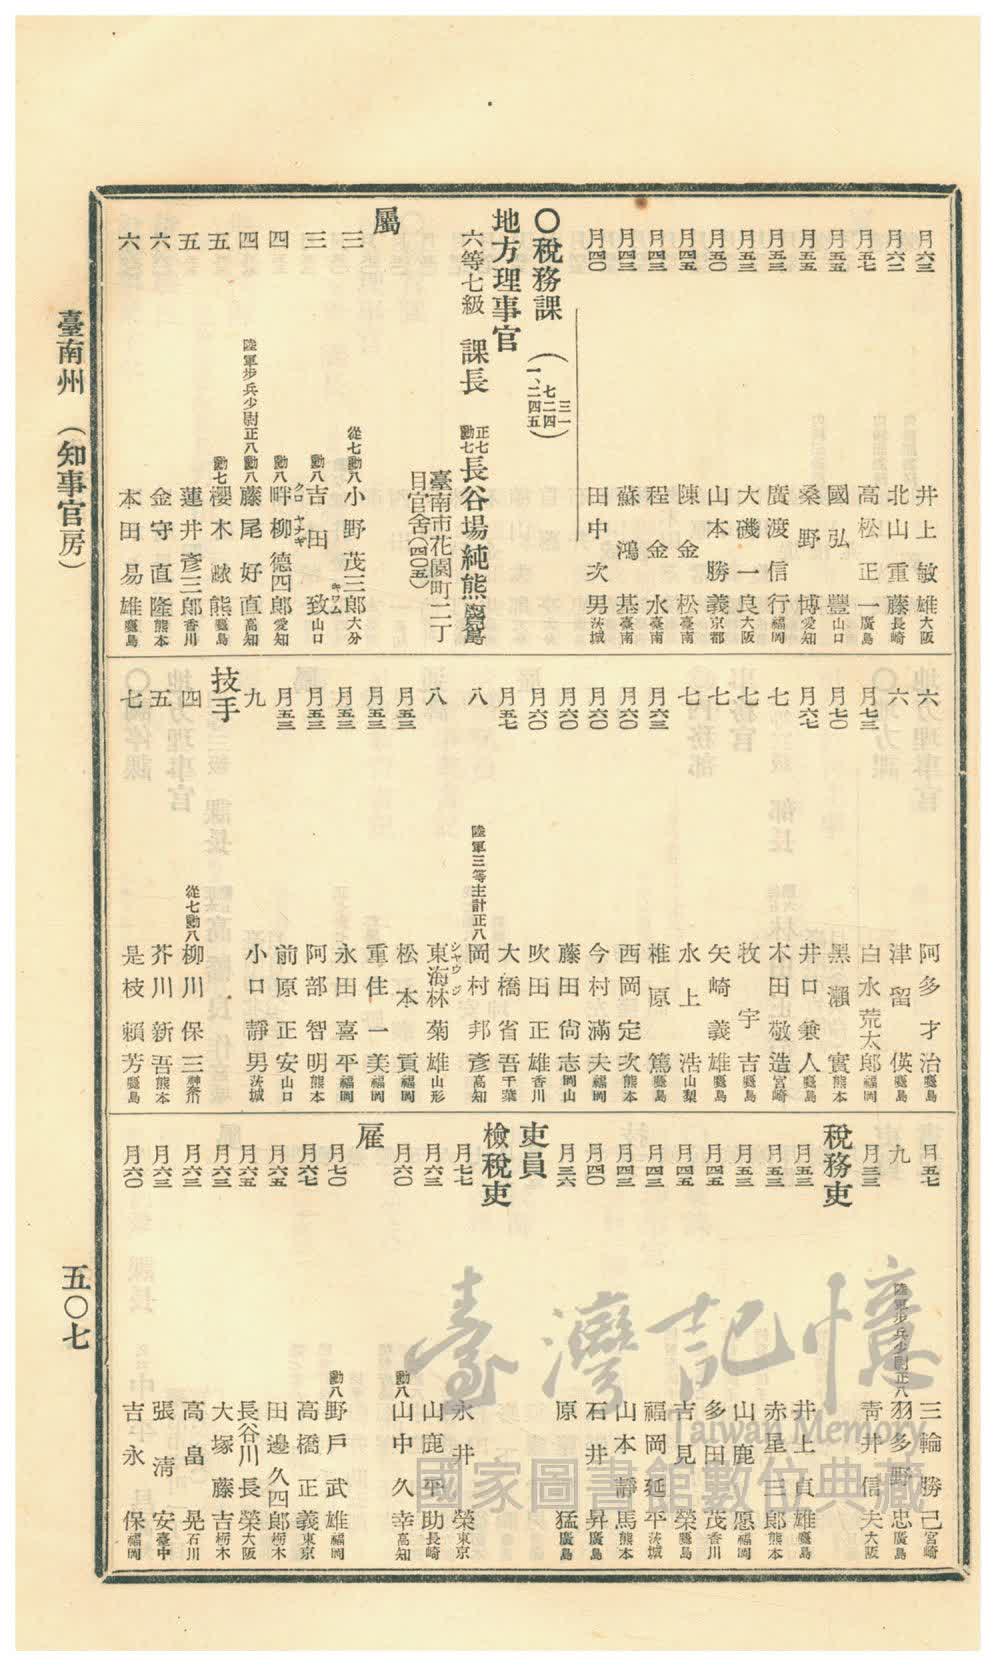 臺南州 （知事官房）
五〇七
月六三 井上敏雄 大阪
月六二 北山重藤 長崎
月五七 高松正一 廣島
月五五 國弘豐 山口
月五五 桑野博 愛知
月五三 廣渡信行 福岡
月五三 大磯一良 大阪
月五〇 山本勝義 京都
月四五 陳金松 臺南
月四三 程金水 臺南
月四三 蘇鴻基 臺南
月四〇 田中次男 茨城
〇稅務課 （三一 七二四 一、二四五）
地方理事官
六等七級 課長 正七勳七 長谷場純熊 鹿兒島
臺南市花園町二丁
目官舍（四〇五）
屬
三 從七勳八 小野茂三郎 大分
三 勳八 吉田致 キワム 山口
四 勳八 畔柳德四郎 クロヤナギ 愛知
四 陸軍步兵少尉正八勳八 藤尾好直 高知
五 勳七 櫻木歐熊 鹿兒島
五 蓮井彥三郎 香川
六 金守直隆 熊本
六 本田易雄 鹿兒島
六 阿多才治 鹿兒島
六 津留偀 鹿兒島
月七三 白水荒太郎 福岡
月七〇 黑瀨實 熊本
月六七 井口兼人 鹿兒島
七 木田敬造 宮崎
七 牧宇吉 鹿兒島
七 矢崎義雄 鹿兒島
七 水上浩 山梨
月六三 椎原篤 鹿兒島
月六〇 西岡定次 熊本
月六〇 今村滿夫 福岡
月六〇 藤田尙志 岡山
月六〇 吹田正雄 香川
月五七 大橋省吾 千葉
八 陸軍三等主計正八 岡村邦彥 高知
八 東海林菊雄 シヤウジ 山形
月五三 松本貢 福岡
月五三 重住一美 福岡
月五三 永田喜平 福岡
月五三 阿部智明 熊本
月五三 前原正安 山口
九 小口靜男 茨城
技手
四 從七勳八 柳川保三 神奈川
五 芥川新吾 熊本
七 是枝賴芳 鹿兒島
月五七 三輪勝己 宮崎
九 陸軍步兵少尉正八 羽多野忠 廣島
月三三 靑井信夫 大阪
稅務吏
月五三 井上貞雄 鹿兒島
月五三 赤星三郎 熊本
月五三 山鹿愿 福岡
月四五 多田茂 香川
月四五 吉見榮 鹿兒島
月四三 福岡延平 茨城
月四三 山本靜馬 熊本
月四〇 石井昇 廣島
月三六 原猛 廣島
吏員
檢稅吏
月七七 永井榮 東京
月六三 山鹿平助 長崎
月六〇 勳八 山中久幸 高知
雇
月七〇 勳八 野戶武雄 福岡
月六七 高橋正義 東京
月六五 田邊久四郎 栃木
月六五 長谷川長榮 大阪
月六三 大塚藤吉 栃木
月六三 高畠晃 石川
月六三 張清安 臺中
月六〇 吉永保 福岡
臺灣記憶
Taiwan Memory
國家圖書館數位典藏